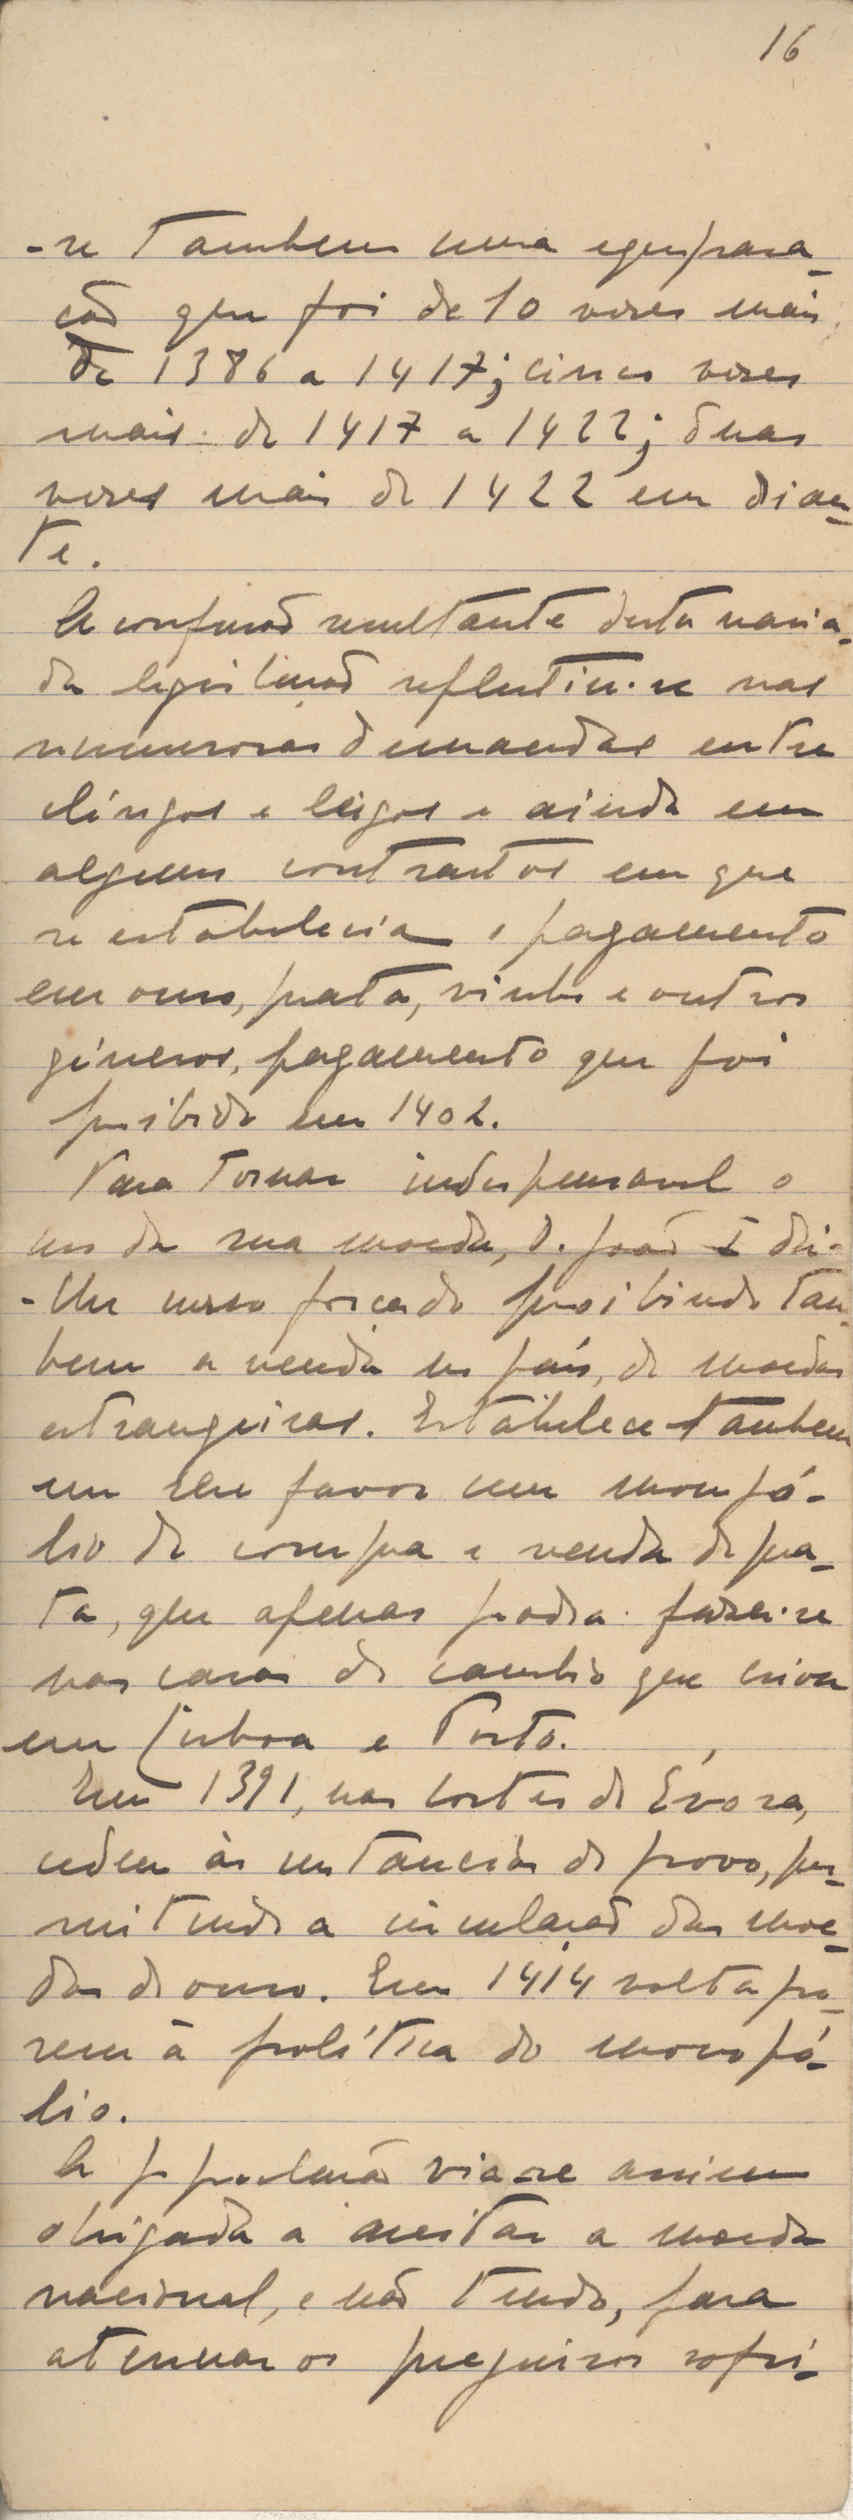 16
-se tambem uma equipara-
ção que foi de 10 vezes mais
de 1386 a 1417; cinco vezes
mais de 1417 a 1422; duas
vezes mais de 1422 em dian-
te.
A confusão resultante desta varia-
da legislação reflectiu-se nas
numerosas demandas entre
clérigos e leigos e ainda em
alguns contractos em que
se estabelecia o pagamento
em ouro, prata, vinho e outros
géneros, pagamento que foi
proibido em 1402.
Para tornar indispensavel o
uso da sua moeda, D. João I deu-
-lhe curso forçado proibindo tam-
bem a venda no país, de moedas
estrangeiras. Estabelece tambem
em seu favor um monopó-
lio de compra e venda de pra-
ta, que apenas podia fazer-se
nas casas de cambio que criou
em Lisboa e Porto.
Em 1391, nas Cortes de Évora,
cedeu às instancias do povo, per-
mitindo a circulação das moe-
das de ouro. Em 1414 volta po-
rem à política do monopó-
lio.
A população via-se assim
obrigada a aceitar a moeda
nacional, e não tendo, para
atenuar os prejuizos sofri-